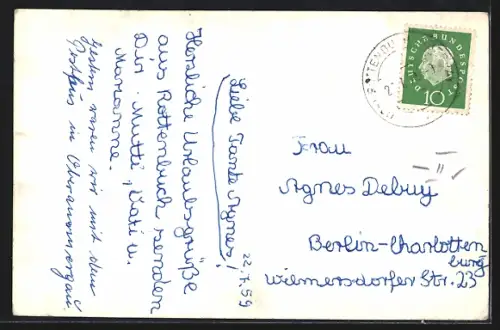 22.7.59
Liebe Tante Agnes!
Herzliche Urlaubsgrüße
aus Rottenbuch senden
Dir Mutti, Vati u.
Marianne.
Gestern waren wir mit dem
in Oberammergau.
DEUTSCHE BUNDESPOST
10
Frau
Agnes Debuy
II
Berlin-Charlotten
burg
Wilmersdorfer Str. 23